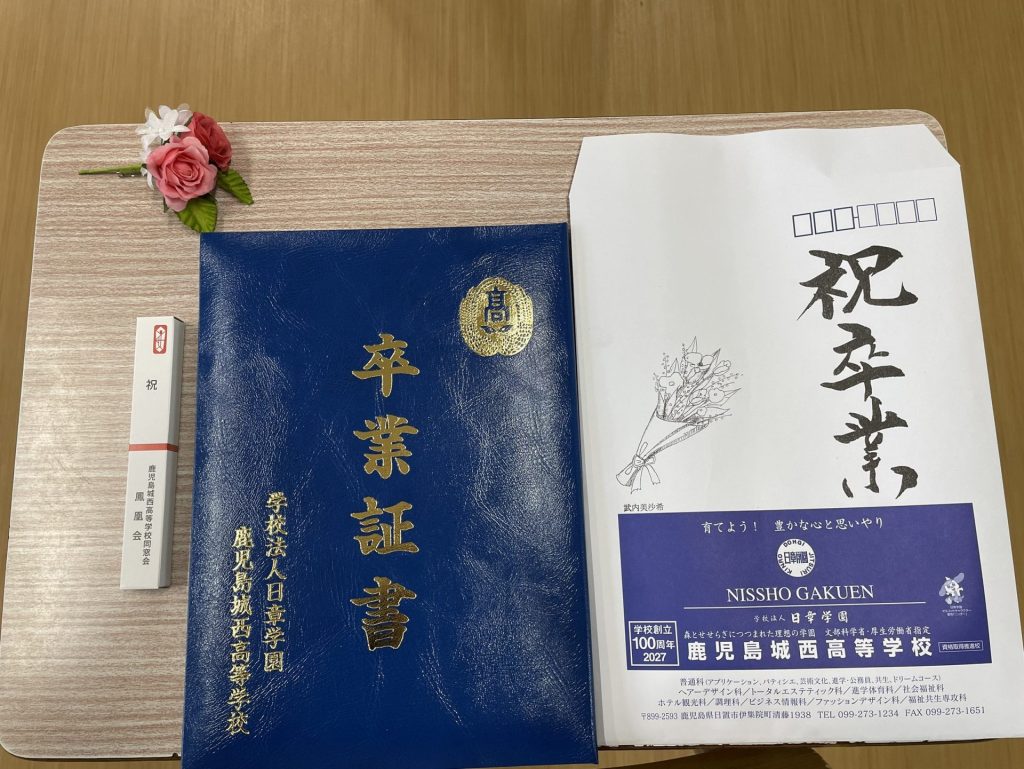 祝
鹿児島城西高等学校同窓会
鳳凰会
高
卒業証書
学校法人日章学園
鹿児島城西高等学校
祝卒業
武内美沙希
育てよう! 豊かな心と思いやり
NISSHO GAKUEN
学校法人 日章学園
学校創立
100周年
2027
森とせせらぎにつつまれた理想の学園 文部科学省・厚生労働省指定
鹿児島城西高等学校
資格取得推進校
普通科(アプリケーション、パティシエ、芸術文化、進学・公務員、共生、ドリームコース)
ヘアーデザイン科/トータルエステティック科/進学体育科/社会福祉科
ホテル観光科/調理科/ビジネス情報科/ファッションデザイン科/福祉共生専攻科
〒899-2593 鹿児島県日置市伊集院町清藤1938 TEL 099-273-1234 FAX 099-273-1651